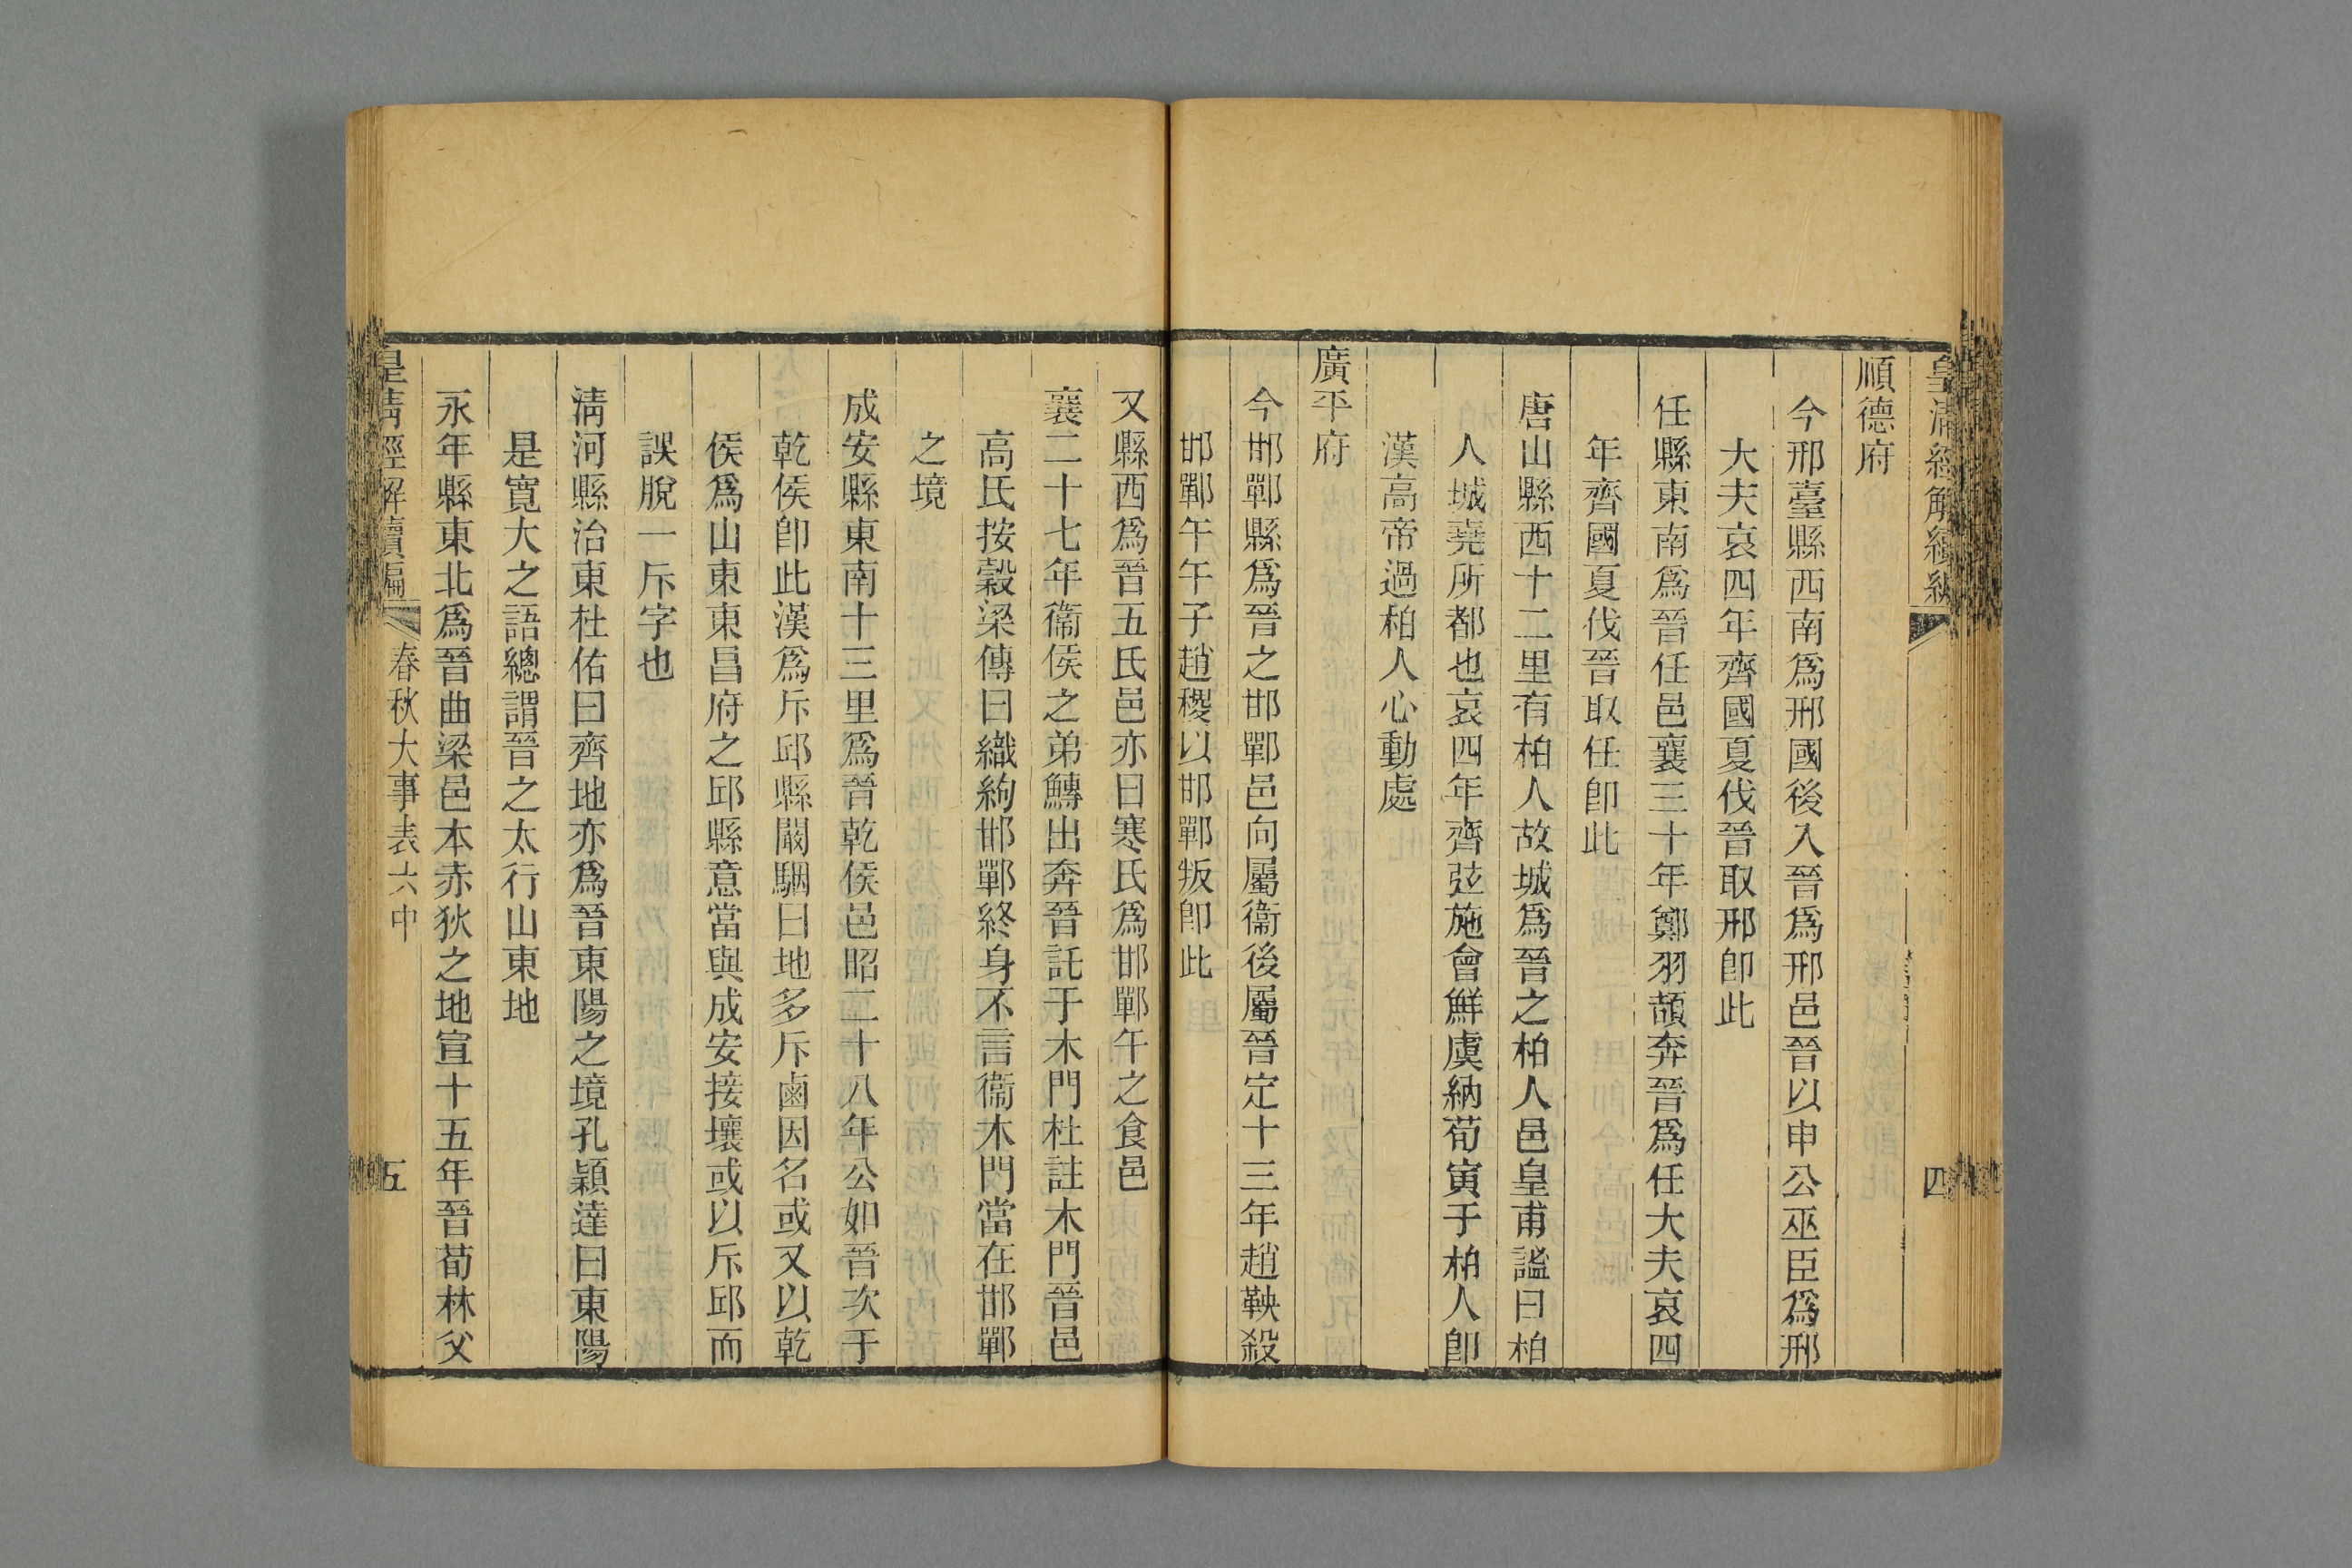 皇清經解續編 四
順德府
今邢臺縣西南爲邢國後入晉爲邢邑晉以申公巫臣爲邢
大夫哀四年齊國夏伐晉取邢卽此
任縣東南爲晉任邑襄三十年鄭羽頡奔晉爲任大夫哀四
年齊國夏伐晉取任卽此
唐山縣西十二里有柏人故城爲晉之柏人邑皇甫謐曰柏
人城堯所都也哀四年齊弦施會鮮虞納荀寅于柏人卽
漢高帝過柏人心動處
廣平府
今邯鄲縣爲晉之邯鄲邑向屬衞後屬晉定十三年趙鞅殺
邯鄲午午子趙稷以邯鄲叛卽此
又縣西爲晉五氏邑亦曰寒氏爲邯鄲午之食邑
襄二十七年衞侯之弟鱄出奔晉託于木門杜註木門晉邑
高氏按穀梁傳曰織絇邯鄲終身不言衞木門當在邯鄲
之境
成安縣東南十三里爲晉乾侯邑昭二十八年公如晉次于
乾侯卽此漢爲斥邱縣闞駰曰地多斥鹵因名或又以乾
侯爲山東東昌府之邱縣意當與成安接壤或以斥邱而
誤脫一斥字也
淸河縣治東杜佑曰齊地亦爲晉東陽之境孔穎達曰東陽
是寬大之語總謂晉之太行山東地
永年縣東北爲晉曲梁邑本赤狄之地宣十五年晉荀林父
皇淸經解續編 春秋大事表六中 五